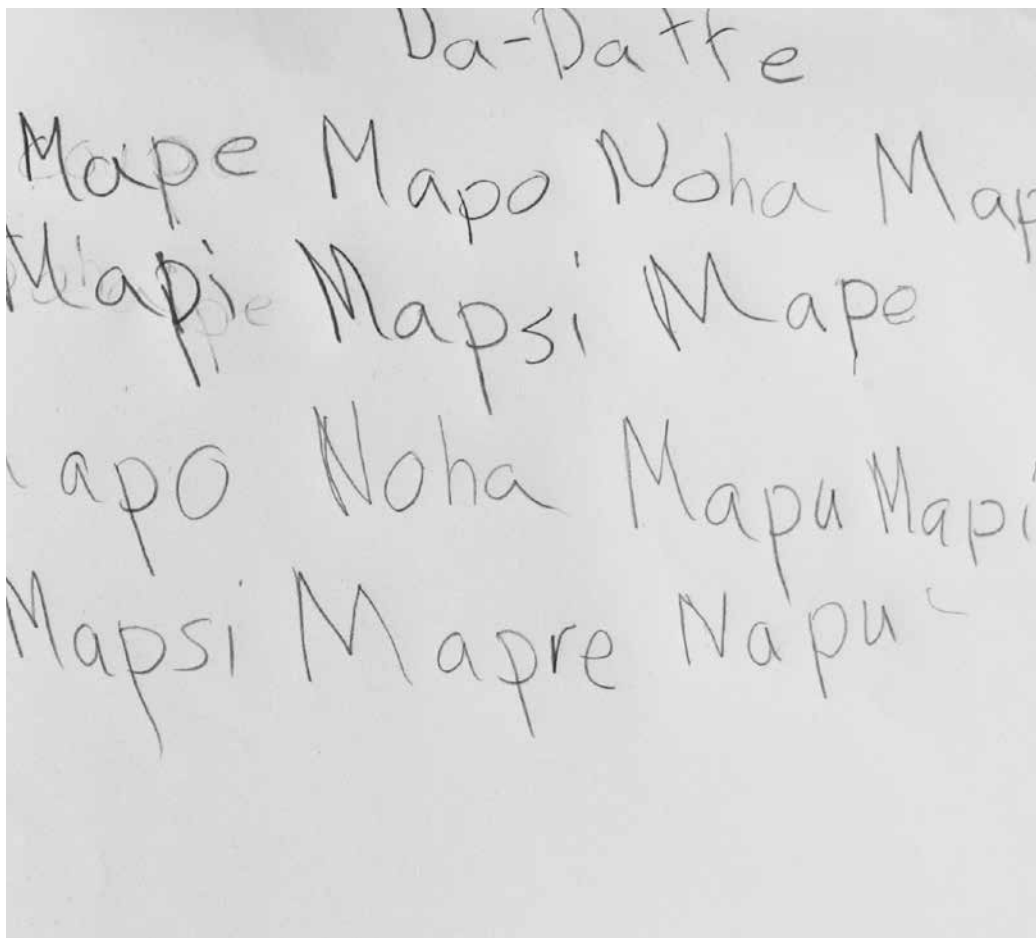 Da-Datte
Mape Mapo Noha Map
Mapi Mapsi Mape
apo Noha Mapu Mapi
Mapsi Mapre Napu